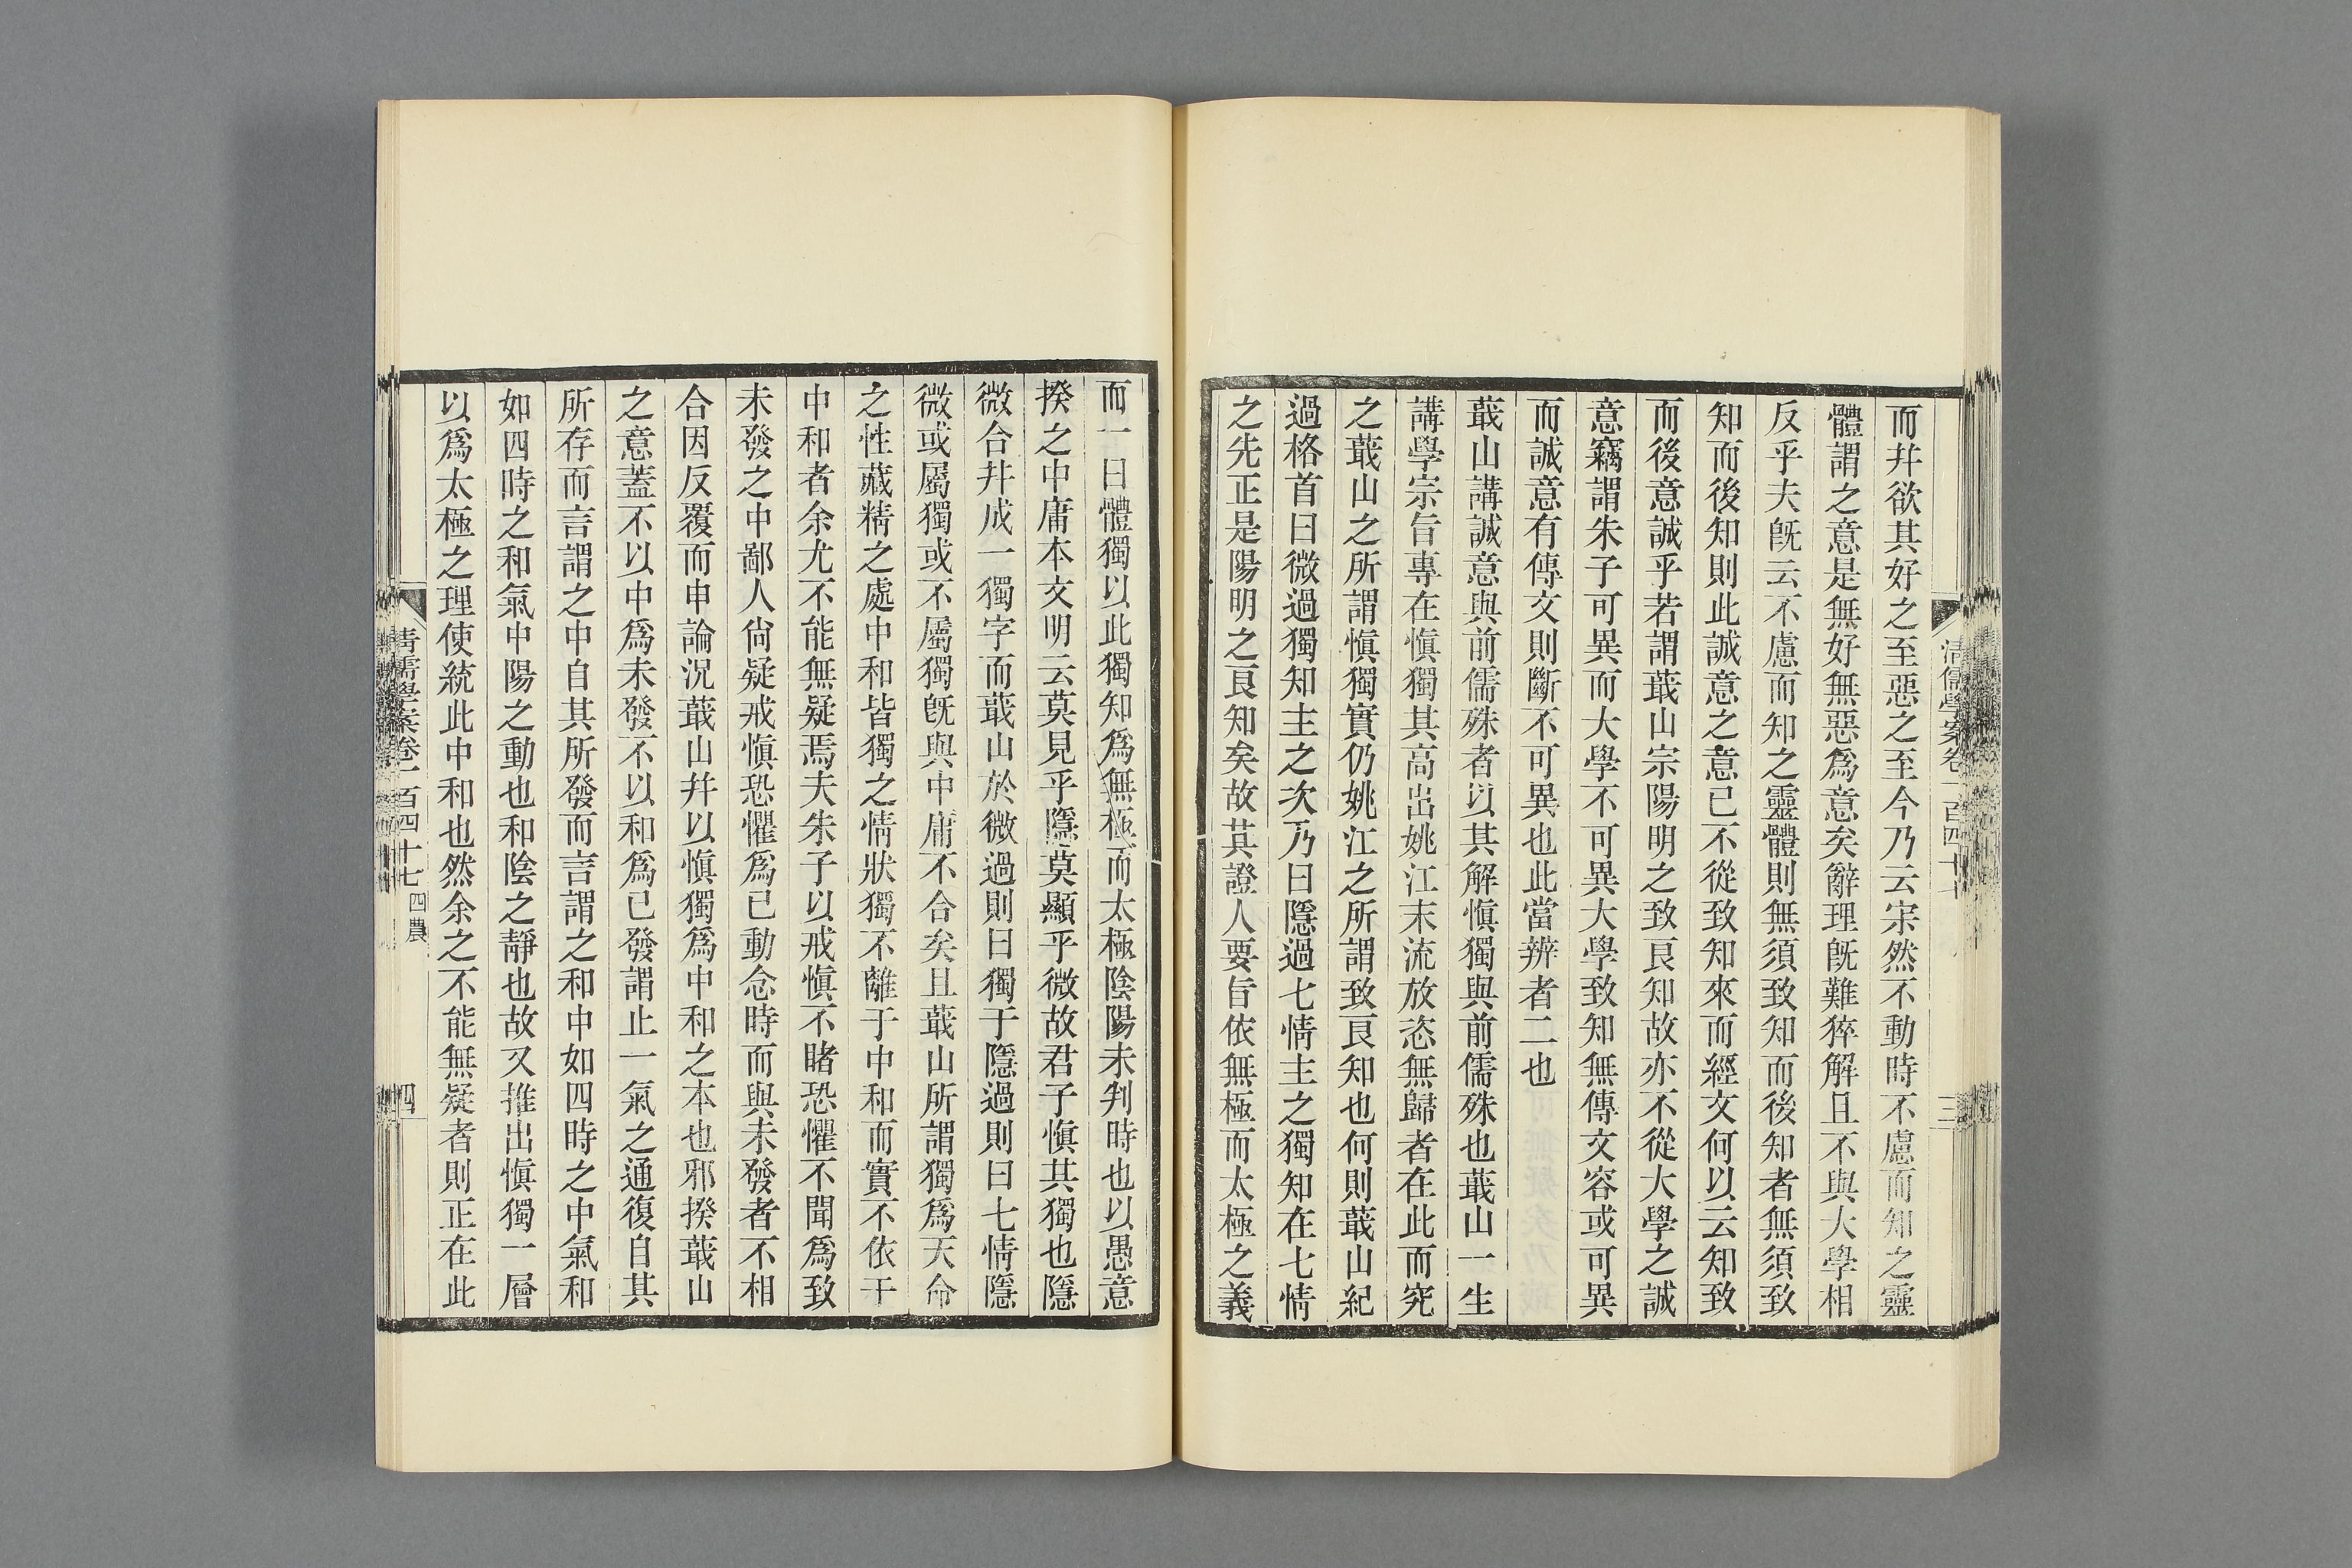 清儒學案卷一百四十七
三
而幷欲其好之至惡之至今乃云宋然不動時不慮而知之靈
體謂之意是無好無惡爲意矣辭理旣難猝解且不與大學相
反乎夫旣云不慮而知之靈體則無須致知而後知者無須致
知而後知則此誠意之意已不從致知來而經文何以云知致
而後意誠乎若謂蕺山宗陽明之致良知故亦不從大學之誠
意竊謂朱子可異而大學不可異大學致知無傳文容或可異
而誠意有傳文則斷不可異也此當辨者二也
蕺山講誠意與前儒殊者以其解愼獨與前儒殊也蕺山一生
講學宗旨專在愼獨其高出姚江末流放恣無歸者在此而究
之蕺山之所謂愼獨實仍姚江之所謂致良知也何則蕺山紀
過格首曰微過獨知主之次乃曰隱過七情主之獨知在七情
之先正是陽明之良知矣故其證人要旨依無極而太極之義
而一曰體獨以此獨知爲無極而太極陰陽未判時也以愚意
揆之中庸本文明云莫見乎隱莫顯乎微故君子愼其獨也隱
微合幷成一獨字而蕺山於微過則曰獨于隱過則曰七情隱
微或屬獨或不屬獨旣與中庸不合矣且蕺山所謂獨爲天命
之性藏精之處中和皆獨之情狀獨不離于中和而實不依于
中和者余尤不能無疑焉夫朱子以戒愼不睹恐懼不聞爲致
未發之中鄙人尙疑戒愼恐懼爲已動念時而與未發者不相
合因反覆而申論況蕺山幷以愼獨爲中和之本也邪揆蕺山
之意蓋不以中爲未發不以和爲已發謂止一氣之通復自其
所存而言謂之中自其所發而言謂之和中如四時之中氣和
如四時之和氣中陽之動也和陰之靜也故又推出愼獨一層
以爲太極之理使統此中和也然余之不能無疑者則正在此
清儒學案卷一百四十七 四農
四